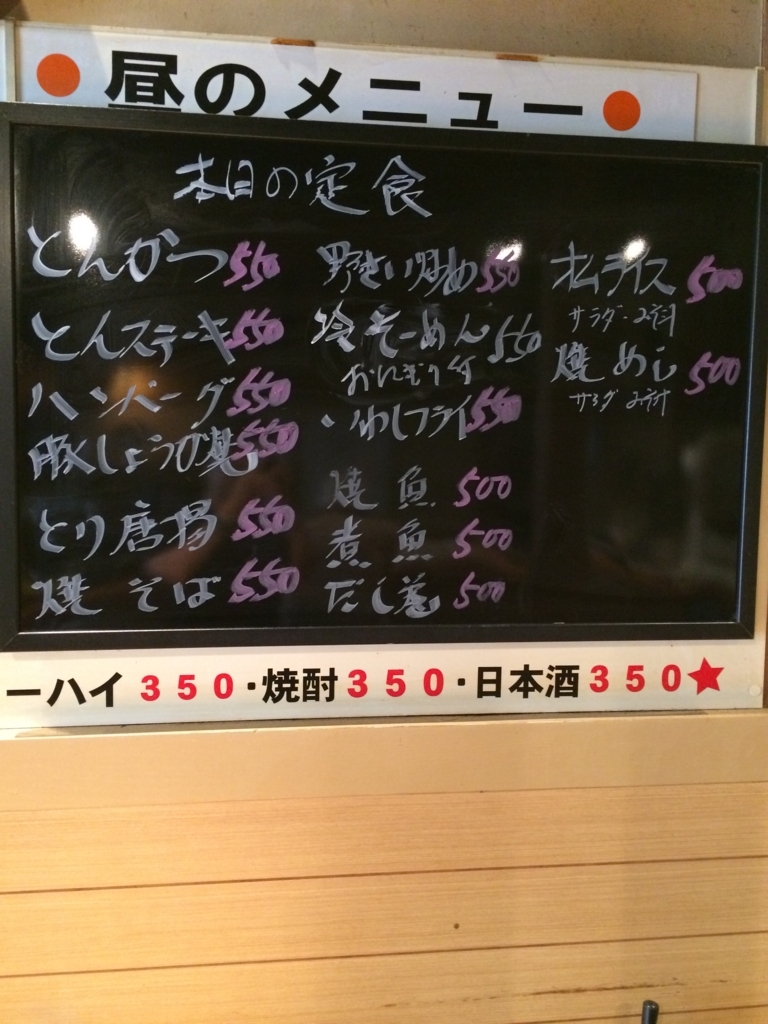 昼のメニュー
本日の定食
とんかつ 550
とんステーキ 550
ハンバーグ 550
豚しょうが焼 550
とり唐揚 550
焼そば 550
野さい炒め 550
冷そーめん 550
おにぎり付
・いわしフライ 550
焼魚 500
煮魚 500
だし巻 500
オムライス 500
サラダ・みそ汁
焼めし 500
サラダ みそ汁
ーハイ350・焼酎350・日本酒350★